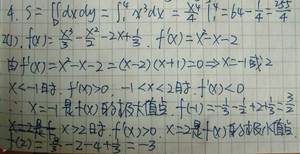 4. S = ∬_D dxdy = ∫₁⁴ x³dx = x⁴/4 |₁⁴ = 64 - 1/4 = 255/4
2(1). f(x) = x³/3 - x²/2 - 2x + 1/3. f'(x) = x² - x - 2
由f'(x) = x² - x - 2 = (x-2)(x+1) = 0 ⇒ x = -1或2
x < -1时 f'(x) > 0. -1 < x < 2时 f'(x) < 0
∴ x = -1是f(x)的极大值点 f(-1) = -1/3 - 1/2 + 2 + 1/3 = 3/2
x = 2是f x > 2时 f'(x) > 0 x = 2是f(x)的极小值点
f(2) = 8/3 - 2 - 4 + 1/3 = -3